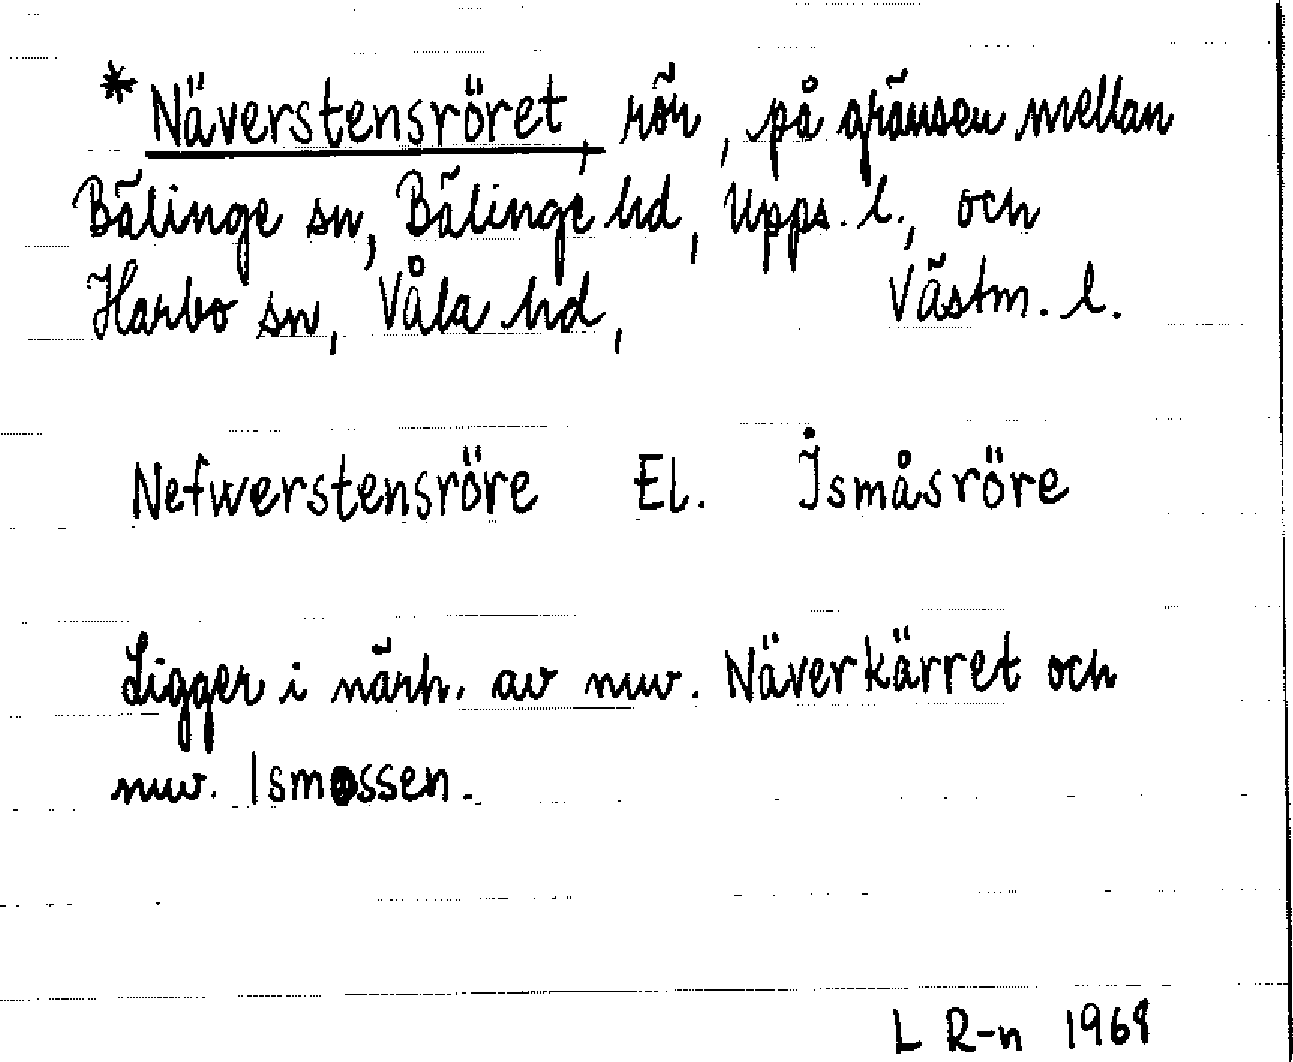 *Näverstensröret, rör, på gränsen mellan
Bälinge sn, Bälinge hd, Upps. l., och
Harbo sn, Våla hd, Västm. l.
Nefwerstensröre El. Ismåsröre
Ligger i närh. av nuv. Näverkärret och
nuv. Ismossen.
L R-n 1968